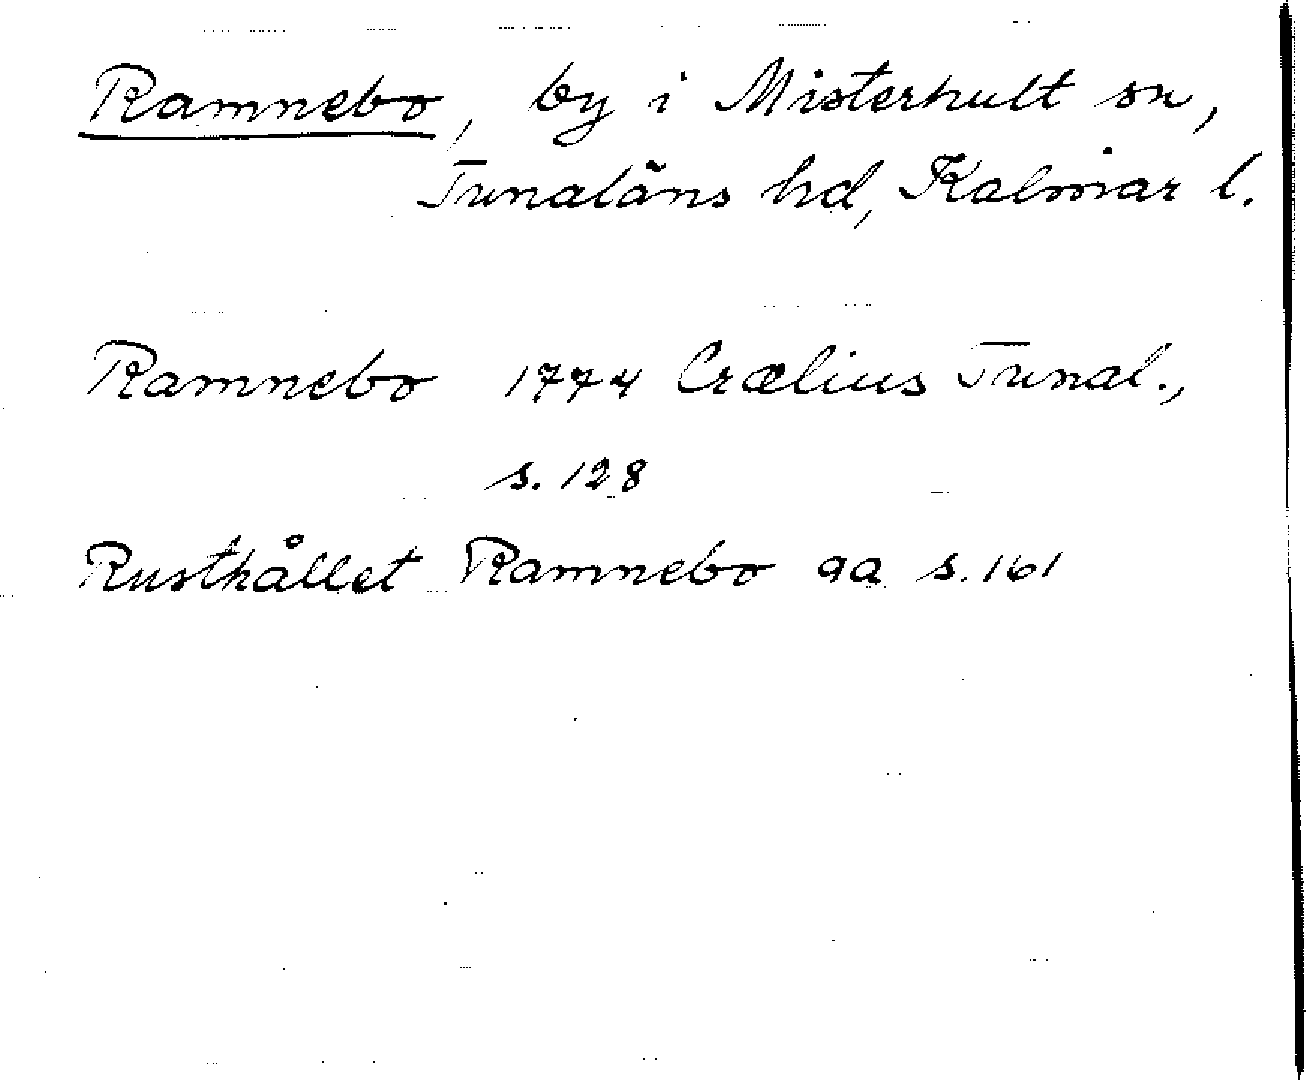 Ramnebo, by i Misterhult sn,
Tunaläns hd, Kalmar l.
Ramnebo 1774 Crælius Tunal.,
s. 128
Rusthållet Ramnebo aa s. 161